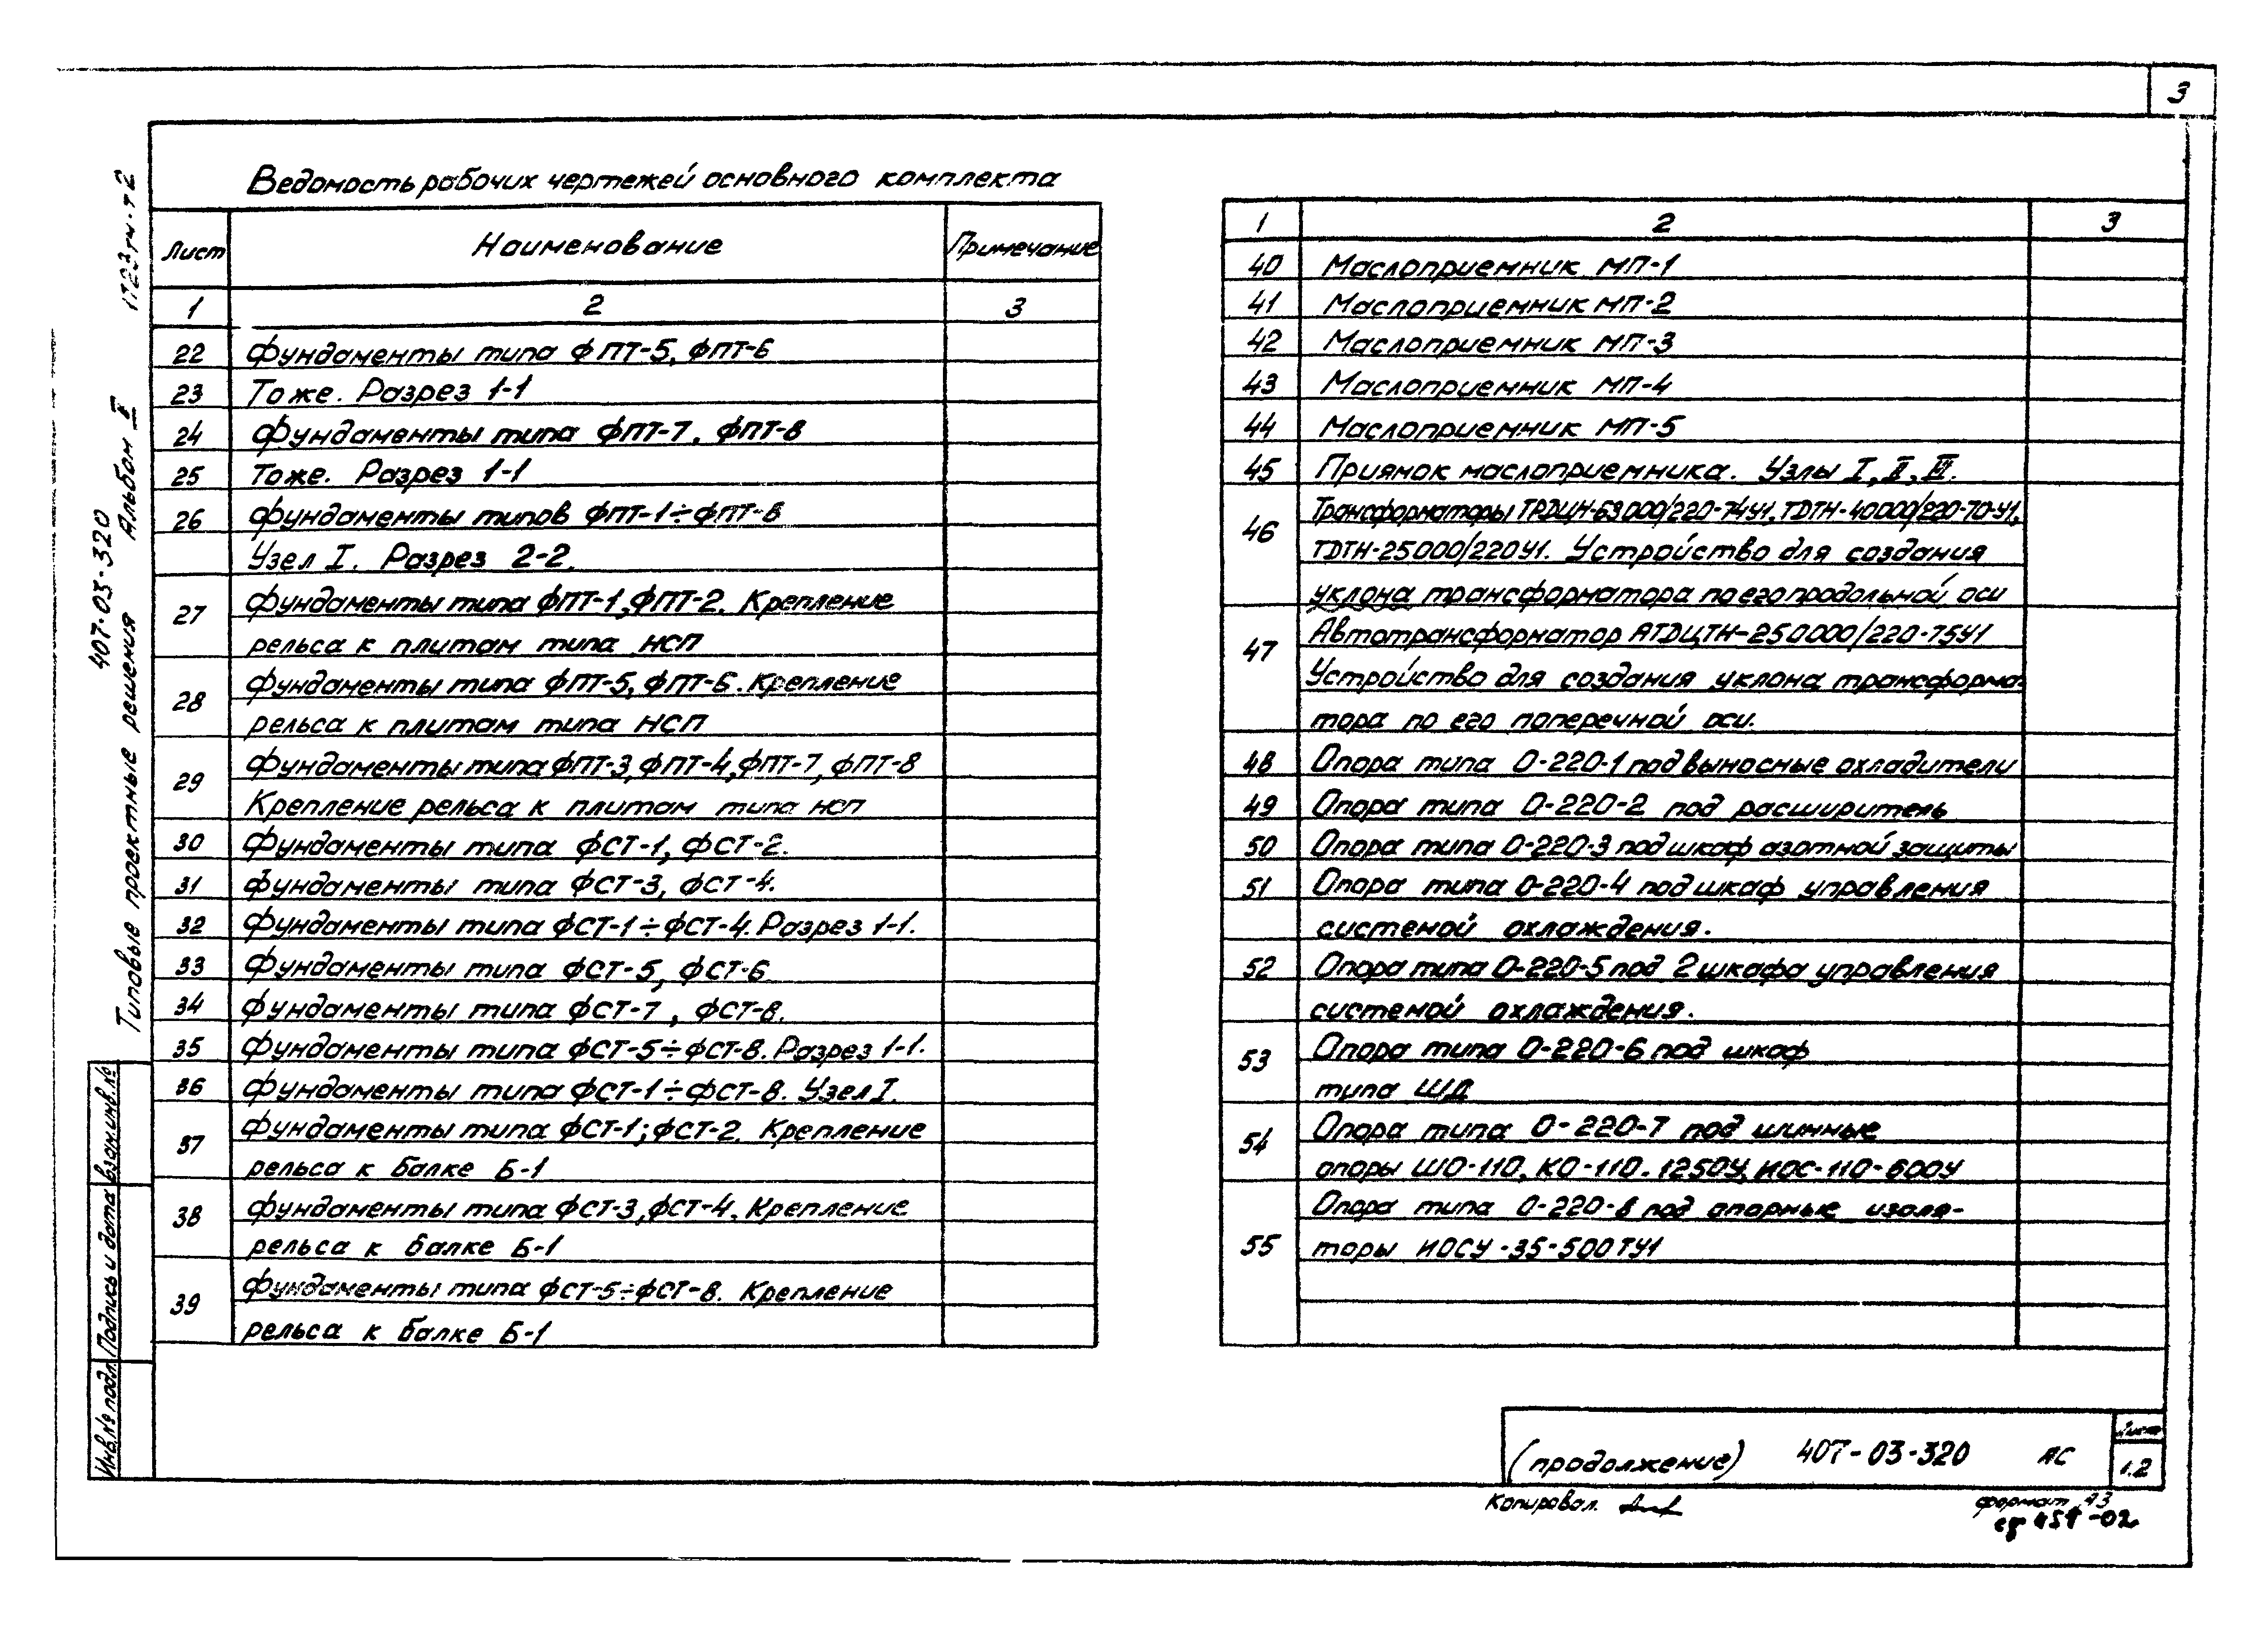 3
Ведомость рабочих чертежей основного комплекта
Лист Наименование Примечание
1 2 3
22 Фундаменты типа ФПТ-5, ФПТ-6
23 Тоже. Разрез 1-1
24 Фундаменты типа ФПТ-7, ФПТ-8
25 Тоже. Разрез 1-1
26 Фундаменты типов ФПТ-1÷ФПТ-8
Узел I. Разрез 2-2.
27 Фундаменты типа ФПТ-1, ФПТ-2. Крепление
рельса к плитам типа НСП
28 Фундаменты типа ФПТ-5, ФПТ-6. Крепление
рельса к плитам типа НСП
29 Фундаменты типа ФПТ-3, ФПТ-4, ФПТ-7, ФПТ-8
Крепление рельса к плитам типа НСП
30 Фундаменты типа ФСТ-1, ФСТ-2.
31 Фундаменты типа ФСТ-3, ФСТ-4.
32 Фундаменты типа ФСТ-1÷ФСТ-4. Разрез 1-1.
33 Фундаменты типа ФСТ-5, ФСТ-6.
34 Фундаменты типа ФСТ-7, ФСТ-8.
35 Фундаменты типа ФСТ-5÷ФСТ-8. Разрез 1-1.
36 Фундаменты типа ФСТ-1÷ФСТ-8. Узел I.
37 Фундаменты типа ФСТ-1; ФСТ-2. Крепление
рельса к балке Б-1
38 Фундаменты типа ФСТ-3, ФСТ-4. Крепление
рельса к балке Б-1
39 Фундаменты типа ФСТ-5÷ФСТ-8. Крепление
рельса к балке Б-1
1 2 3
40 Маслоприемник МП-1
41 Маслоприемник МП-2
42 Маслоприемник МП-3
43 Маслоприемник МП-4
44 Маслоприемник МП-5
45 Приямок маслоприемника. Узлы I, II, III.
46 Трансформаторы ТРДЦН-63000/220-74У1, ТДТН-40000/220-70-У1,
ТДТН-25000/220У1. Устройство для создания
уклона трансформатора по его продольной оси
47 Автотрансформатор АТДЦТН-250000/220-75У1
Устройство для создания уклона трансформа-
тора по его поперечной оси.
48 Опора типа О-220-1 под выносные охладители
49 Опора типа О-220-2 под расширитель
50 Опора типа О-220-3 под шкаф азотной защиты
51 Опора типа О-220-4 под шкаф управления
системой охлаждения.
52 Опора типа О-220-5 под 2 шкафа управления
системой охлаждения.
53 Опора типа О-220-6 под шкаф
типа ШД
54 Опора типа О-220-7 под шинные
опоры ШО-110, КО-110-1250У, ИОС-110-600У
55 Опора типа О-220-8 под опорные изоля-
торы ИОСУ-35-500ТУ1
(продолжение) 407-03-320 АС
Лист
1.2
Копировал.
формат А3
-02
Типовые проектные решения 407-03-320 Альбом II
Взам.инв.№
Подпись и дата
Инв.№ подл.